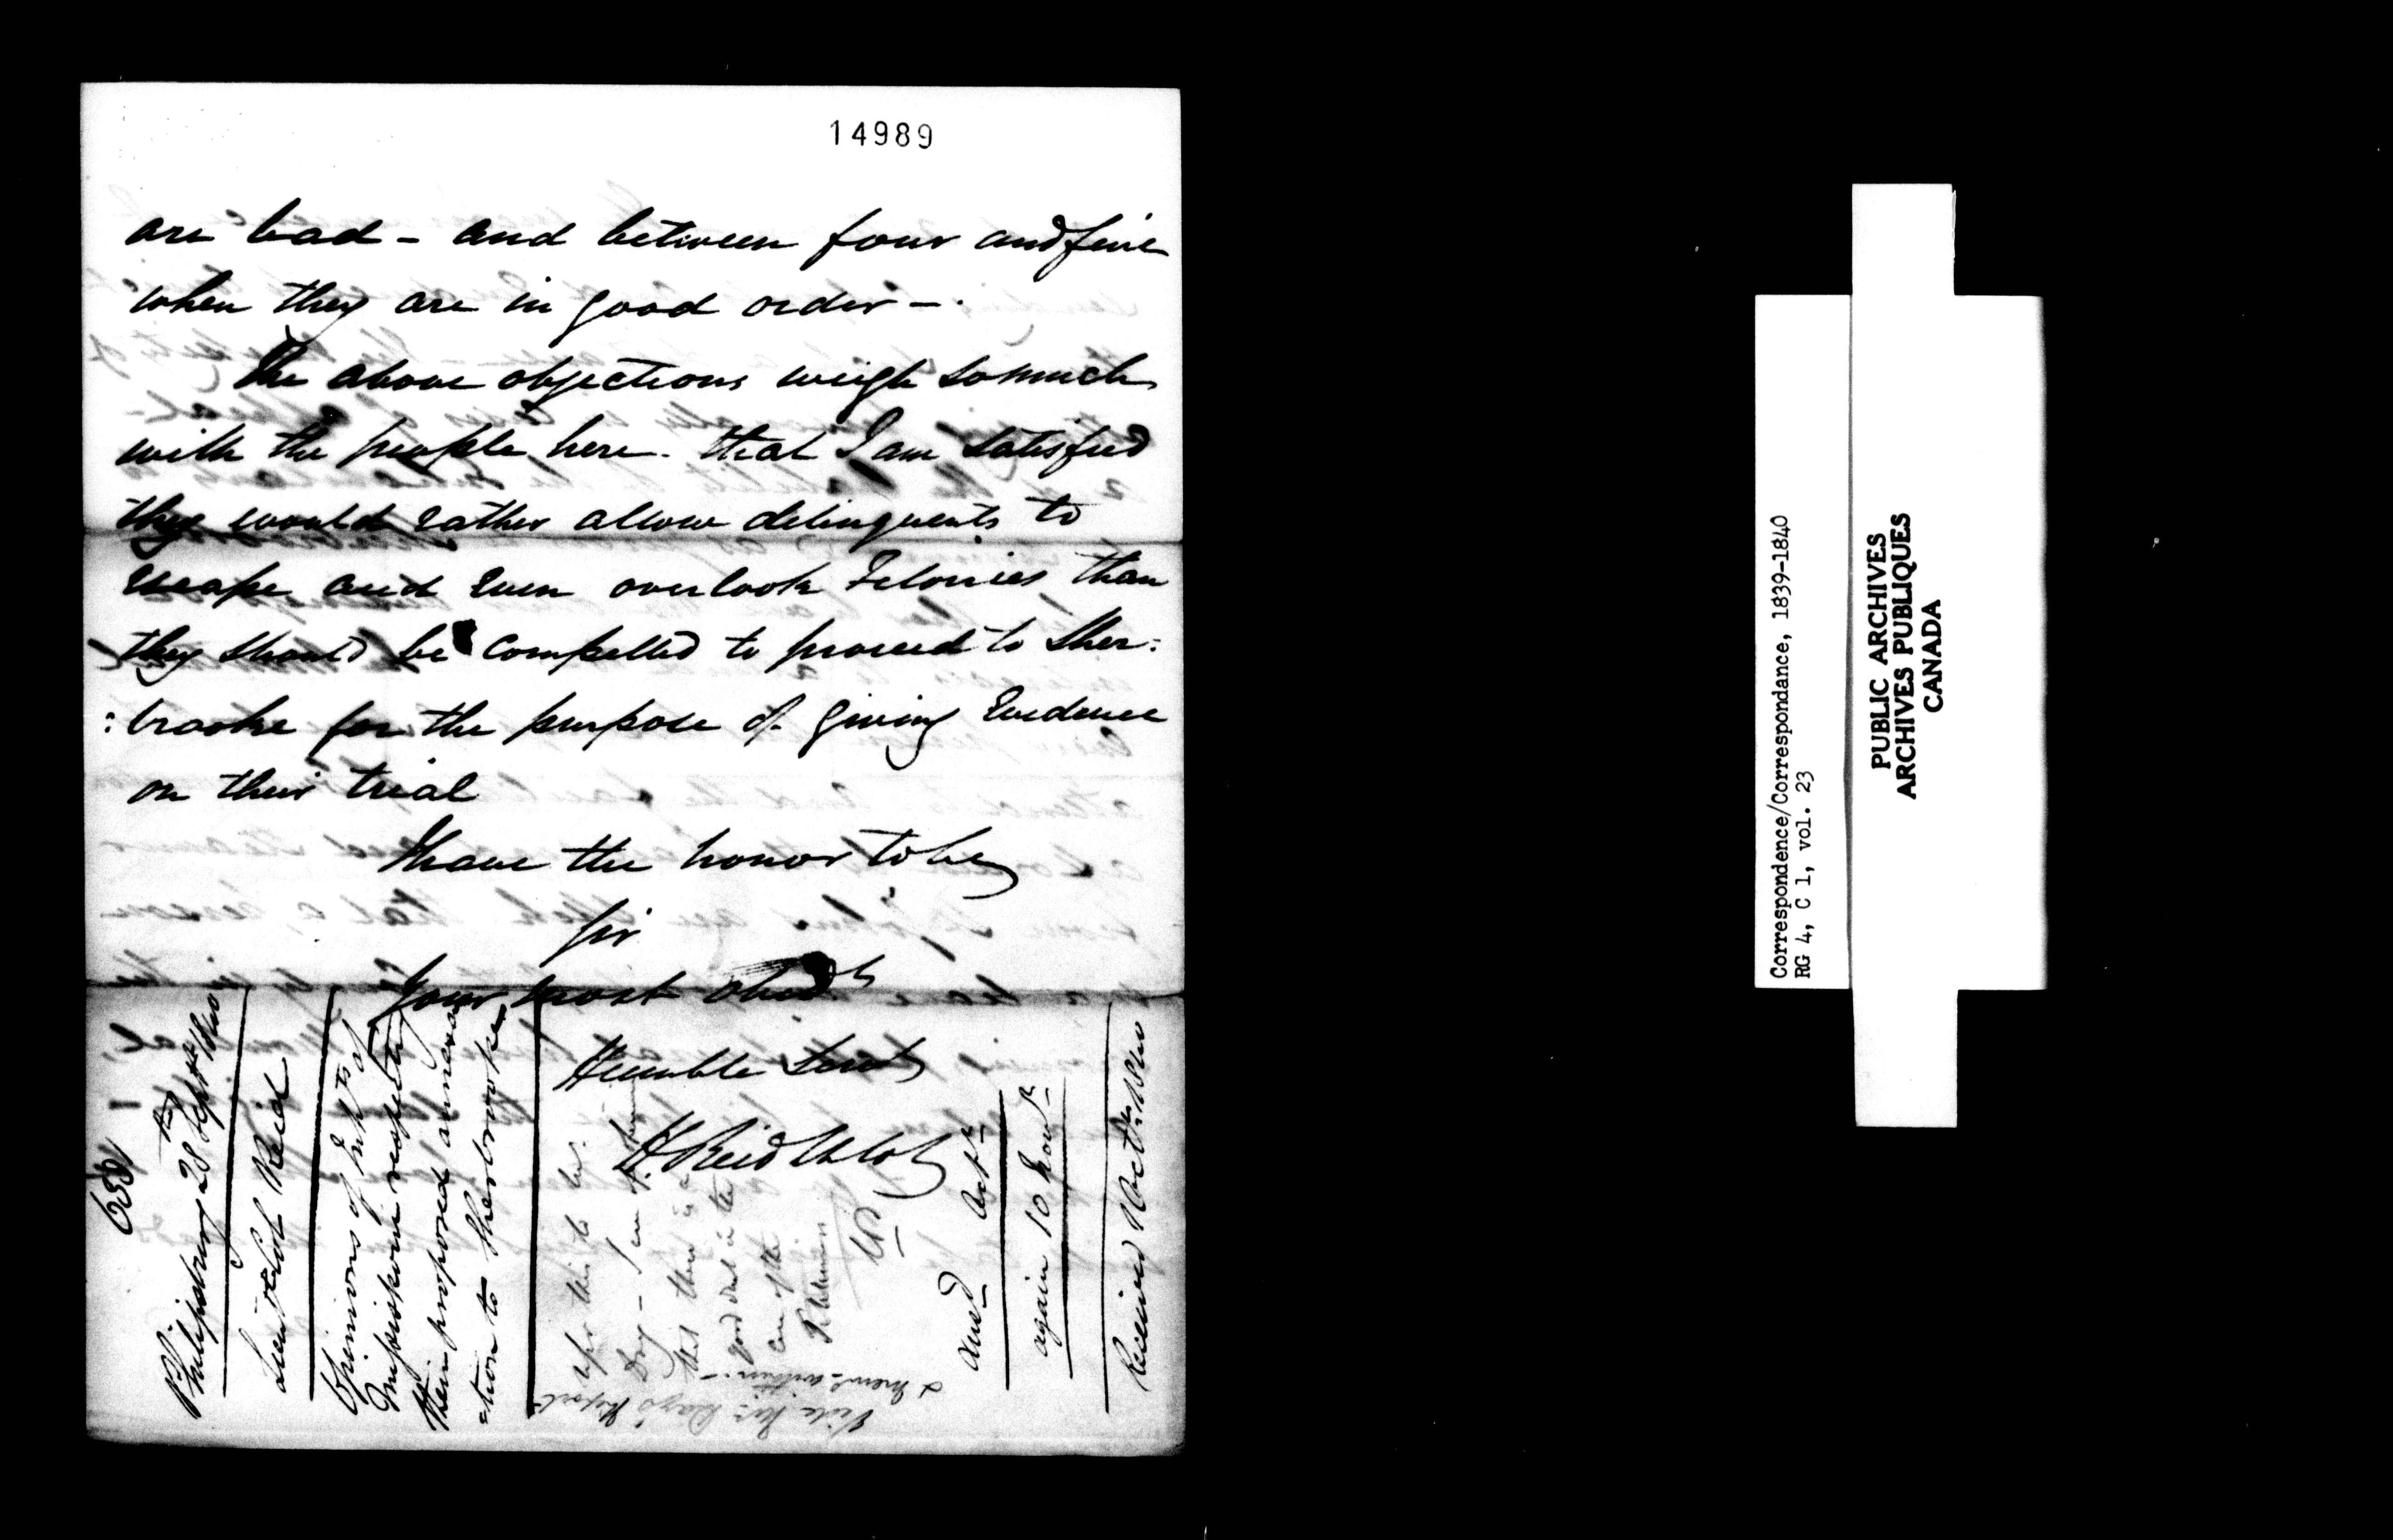 14989
are bad - and between four and five
when they are in good order -
The above objections weigh so much
with the people here. that I am satisfied
they would rather allow delinquents to
escape and even overlook Felonies than
they should be compelled to proceed to Sher:
:brooke for the purpose of giving Evidence
on their trial
I have the honor to be
Sir
Your most obedt
Humble Servt
H. Reid Lt Col
Philipsburg 28th Septr 1840
Lieut Col Reid
Opinions of Inhts of
Missiskoui respecting
their proposed annexa
:tion to Sherbrooke
refer this to Mr.
Day - I am
that there is a
good deal in the
case of the
Petitioners
Vide Mr. Day's Report
Ansd Octr
again 10 Novr
Received Octr 1840
Correspondence/Correspondance, 1839-1840
RG 4, C 1, vol. 23
PUBLIC ARCHIVES
ARCHIVES PUBLIQUES
CANADA